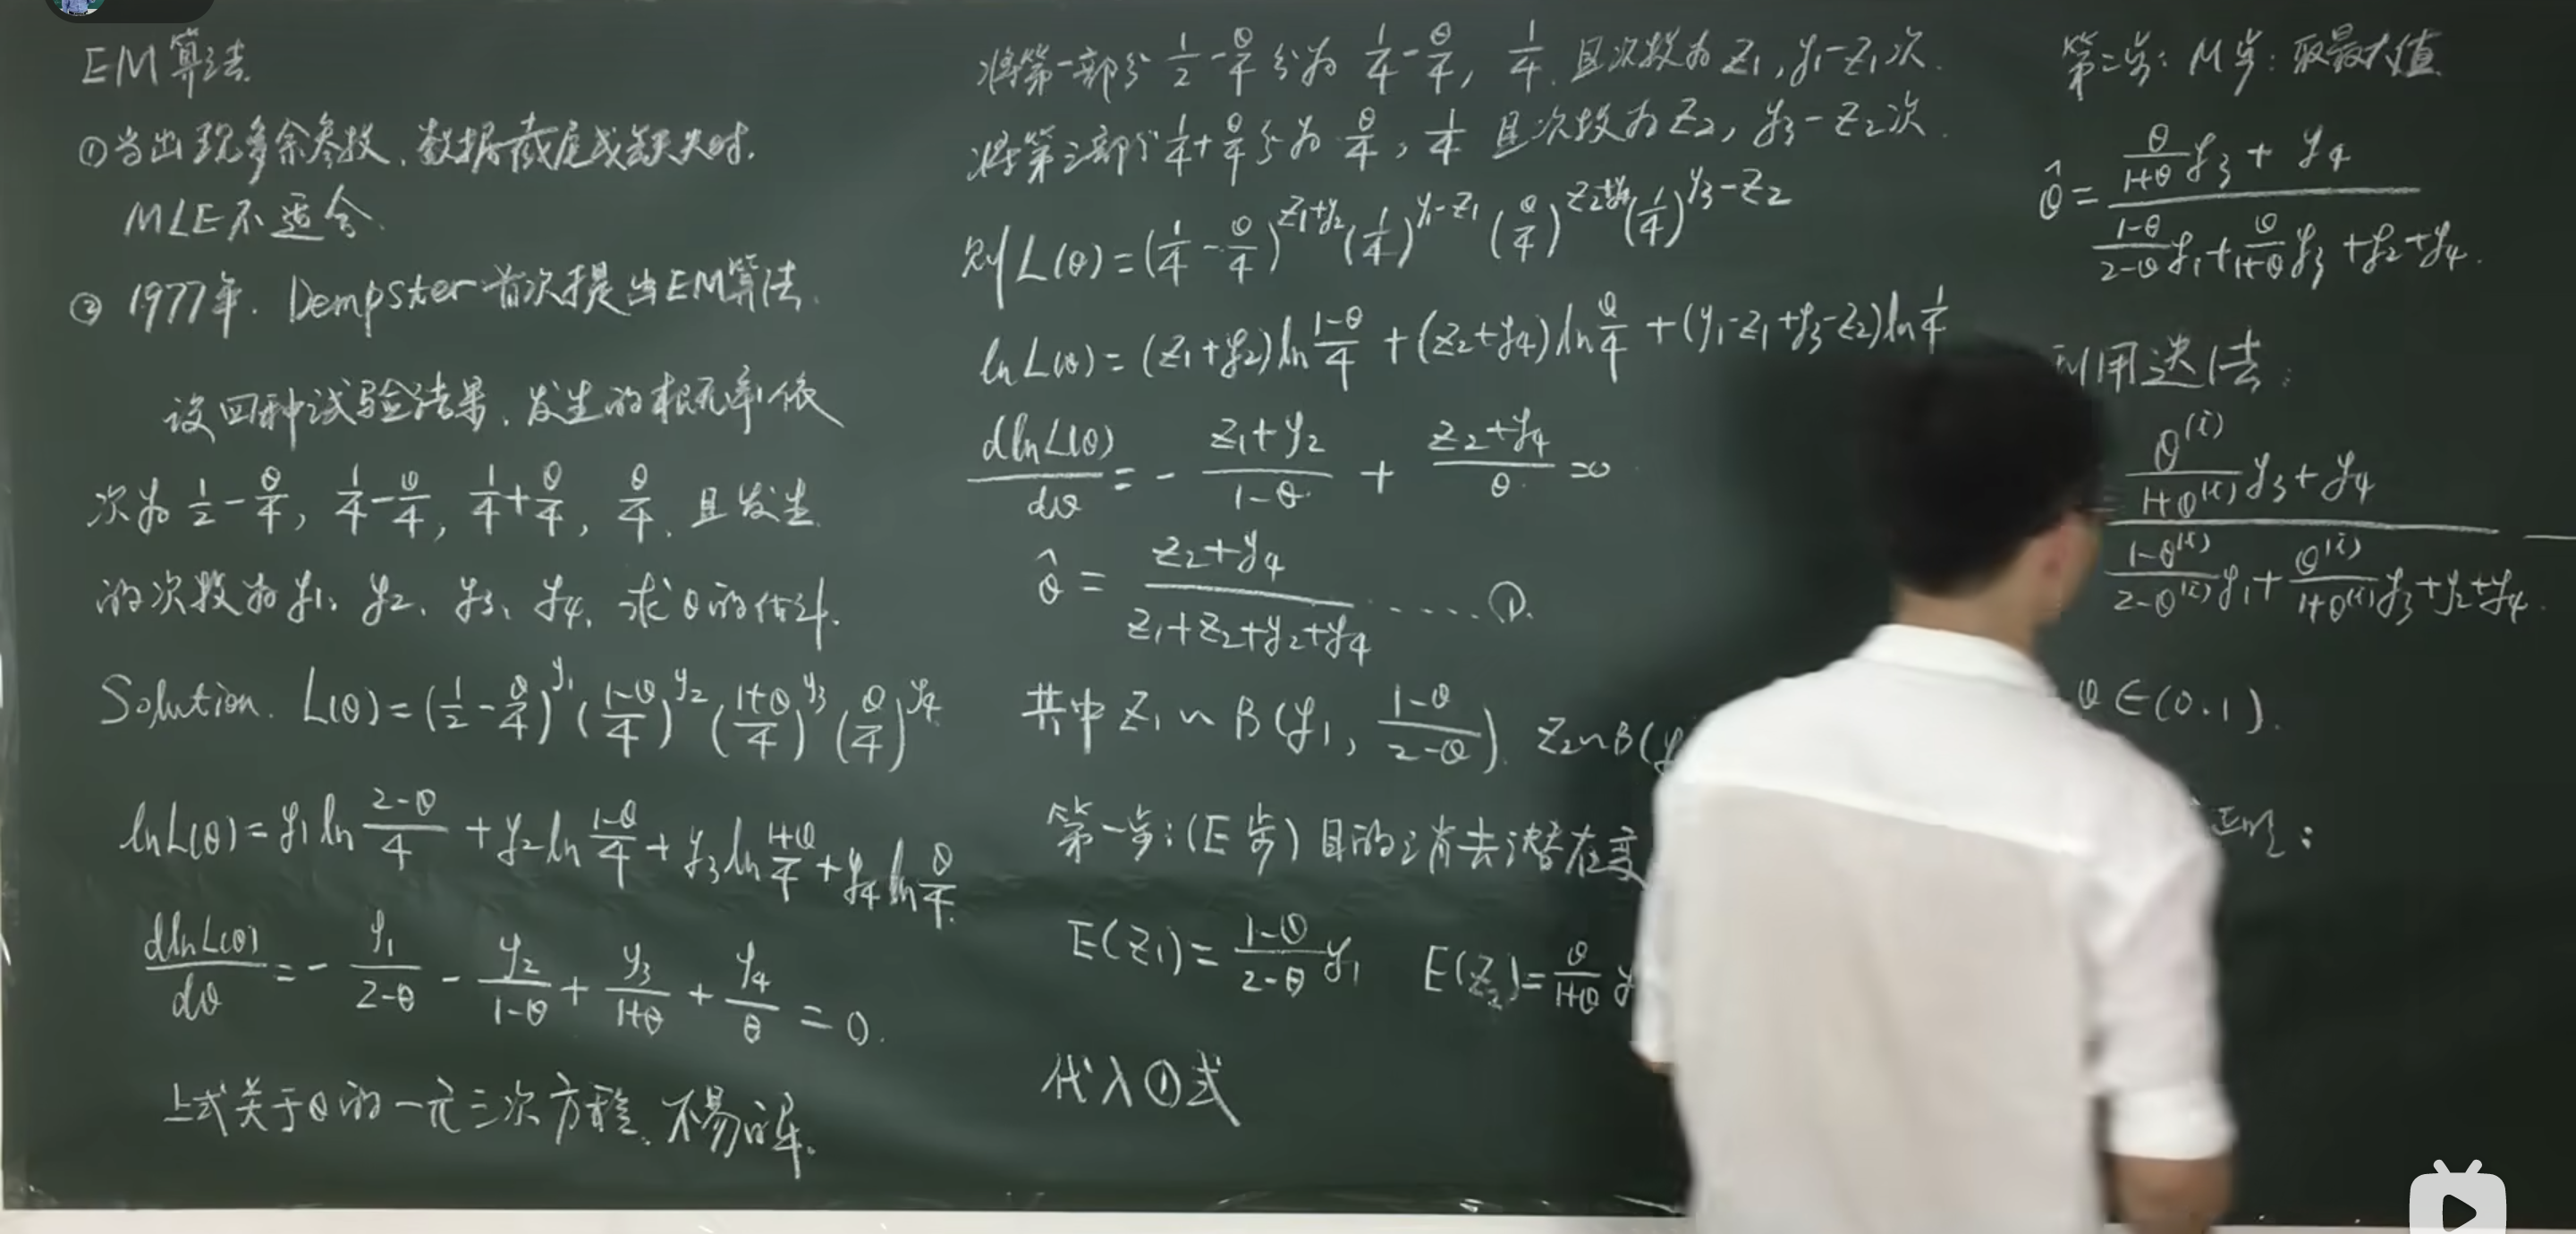 EM算法.
①当出现多余参数、数据截尾或缺失时,
MLE不适合.
② 1977年. Dempster首次提出EM算法.
设四种试验结果、发生的概率依
次为 1/2 - θ/4, 1/4 - θ/4, 1/4 + θ/4, θ/4. 且发生
的次数为 y₁、y₂、y₃、y₄, 求θ的估计.
Solution. L(θ) = (1/2 - θ/4)^y₁ ((1-θ)/4)^y₂ ((1+θ)/4)^y₃ (θ/4)^y₄
lnL(θ) = y₁ ln (2-θ)/4 + y₂ ln (1-θ)/4 + y₃ ln (1+θ)/4 + y₄ ln θ/4.
dlnL(θ)/dθ = - y₁/(2-θ) - y₂/(1-θ) + y₃/(1+θ) + y₄/θ = 0.
上式关于θ的一元三次方程、不易解.
将第一部分 1/2 - θ/4 分为 1/4 - θ/4, 1/4. 且次数为 Z₁, y₁-Z₁次.
将第三部分 1/4 + θ/4 分为 θ/4, 1/4 且次数为 Z₂, y₃-Z₂次.
则 L(θ) = (1/4 - θ/4)^(Z₁+y₂) (1/4)^(y₁-Z₁) (θ/4)^(Z₂+y₄) (1/4)^(y₃-Z₂)
lnL(θ) = (Z₁+y₂) ln (1-θ)/4 + (Z₂+y₄) ln θ/4 + (y₁-Z₁+y₃-Z₂) ln 1/4
dlnL(θ)/dθ = - (Z₁+y₂)/(1-θ) + (Z₂+y₄)/θ = 0
θ̂ = (Z₂+y₄)/(Z₁+Z₂+y₂+y₄) ...... ①.
其中 Z₁ ~ B(y₁, (1-θ)/(2-θ)). Z₂ ~ B(
第一步: (E步) 目的消去潜在变
E(Z₁) = (1-θ)/(2-θ) y₁ E(Z₂) = θ/(1+θ) y
代入①式
第二步: M步: 取最大值
θ̂ = (θ/(1+θ) y₃ + y₄)/((1-θ)/(2-θ) y₁ + θ/(1+θ) y₃ + y₂ + y₄).
利用迭代法:
= (θ⁽ⁱ⁾/(1+θ⁽ⁱ⁾) y₃ + y₄)/((1-θ⁽ⁱ⁾)/(2-θ⁽ⁱ⁾) y₁ + θ⁽ⁱ⁾/(1+θ⁽ⁱ⁾) y₃ + y₂ + y₄).
θ ∈ (0.1).